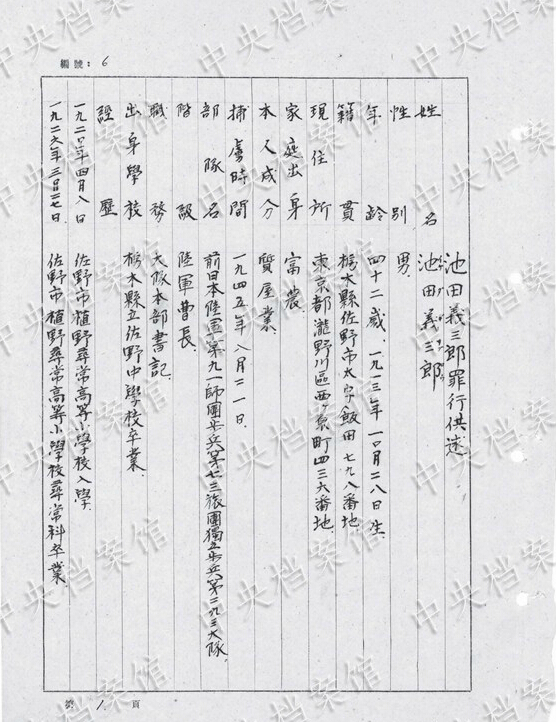 編號: 6
池田義三郎罪行供述
姓名 池田義三郎
イケダギサブロウ
性別 男.
年齡 四十二歲. 一九一三年一〇月二八日生.
籍貫 栃木縣佐野市大字飯田七九八番地.
現住所 東京都瀧野川區西ヶ原町四三六番地.
家庭出身 富農.
本人成分 質屋業.
捕虜時間 一九四五年八月二一日.
部隊名 前日本陸軍第九一師團步兵第七三旅團獨立步兵第二九三大隊.
階級 陸軍曹長.
職務 大隊本部書記.
出身學校 栃木縣立佐野中學校卒業.
經歷
一九二〇年四月八日 佐野市植野尋常高等小學校入學.
一九二六年三月二七日. 佐野市植野尋常高等小學校尋常科卒業.
第 1 頁
中央档案馆